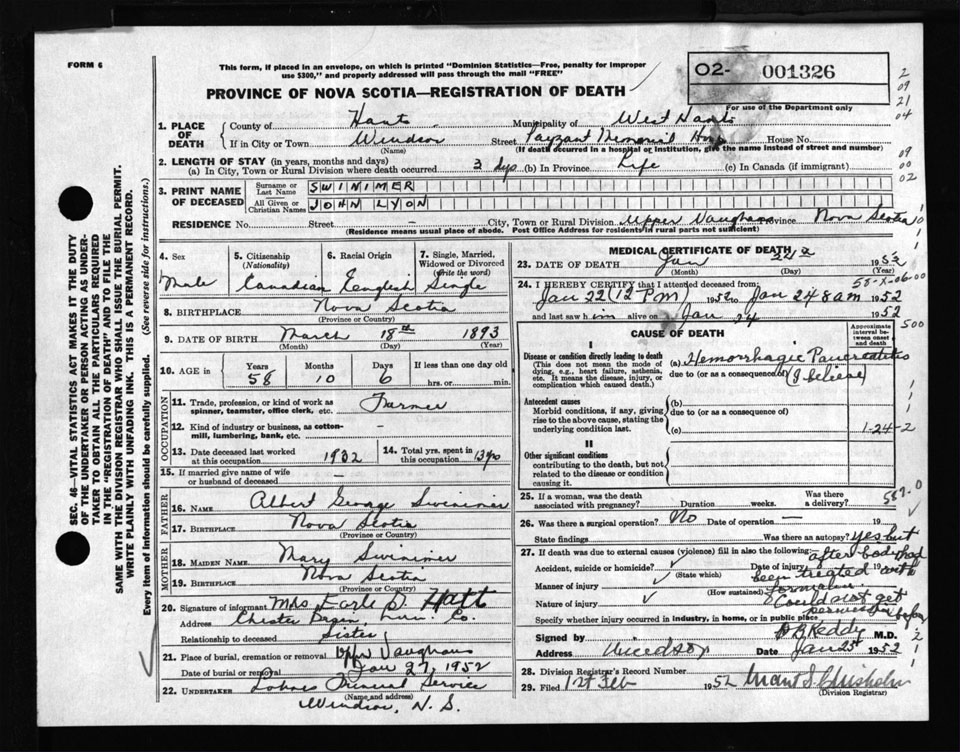 FORM 6
This form, if placed in an envelope, on which is printed "Dominion Statistics—Free, penalty for improper
use $300," and properly addressed will pass through the mail "FREE"
02- 001326
PROVINCE OF NOVA SCOTIA—REGISTRATION OF DEATH
For use of the Department only
2
09
21
04
09
00
02
1. PLACE OF DEATH
County of Hants Municipality of West Hants
If in City or Town Windsor Street Payzant Memorial Hosp House No.
(Name) (If death occurred in a hospital or institution, give the name instead of street and number)
2. LENGTH OF STAY (in years, months and days)
(a) In City, Town or Rural Division where death occurred 3 dys (b) In Province Life (c) In Canada (if immigrant)
3. PRINT NAME OF DECEASED
Surname or Last Name SWINIMER
All Given or Christian Names JOHN LYON
RESIDENCE No. Street — City, Town or Rural Division Upper Vaughans Province Nova Scotia
(Residence means usual place of abode. Post Office Address for residents in rural parts not sufficient)
SEC. 46—VITAL STATISTICS ACT MAKES IT THE DUTY
OF THE UNDERTAKER OR PERSON ACTING AS UNDER-
TAKER TO OBTAIN ALL THE PARTICULARS REQUIRED
IN THE "REGISTRATION OF DEATH" AND TO FILE THE
SAME WITH THE DIVISION REGISTRAR WHO SHALL ISSUE THE BURIAL PERMIT.
WRITE PLAINLY WITH UNFADING INK. THIS IS A PERMANENT RECORD.
Every item of information should be carefully supplied. (See reverse side for instructions.)
4. Sex
Male
5. Citizenship (Nationality)
Canadian
6. Racial Origin
English
7. Single, Married, Widowed or Divorced (Write the word)
Single
8. BIRTHPLACE Nova Scotia
(Province or Country)
9. DATE OF BIRTH March 18th 1893
(Month) (Day) (Year)
10. AGE in Years Months Days If less than one day old
58 10 6 hrs. or min.
OCCUPATION
11. Trade, profession, or kind of work as
spinner, teamster, office clerk, etc. Farmer
12. Kind of industry or business, as cotton-
mill, lumbering, bank, etc. —
13. Date deceased last worked
at this occupation 1932
14. Total yrs. spent in
this occupation
15. If married give name of wife
or husband of deceased —
FATHER
16. NAME Albert George Swinimer
17. BIRTHPLACE Nova Scotia
(Province or Country)
MOTHER
18. MAIDEN NAME Mary Swinimer
19. BIRTHPLACE Nova Scotia
(Province or Country)
20. Signature of informant Mrs Earle D. Hatt
Address Chester Basin, Lun. Co.
Relationship to deceased Sister
21. Place of burial, cremation or removal Upper Vaughans
Date of burial or removal Jan 27, 1952
22. UNDERTAKER Funeral Service
(Name and address)
Windsor, N. S.
MEDICAL CERTIFICATE OF DEATH
23. DATE OF DEATH Jan 1952
(Month) (Day) (Year)
58-X-06-00
24. I HEREBY CERTIFY that I attended deceased from:
Jan 22 (12 PM) 1952 to Jan 24 8am 1952
and last saw him alive on Jan 24 1952
500
CAUSE OF DEATH
Approximate interval between onset and death
I
Disease or condition directly leading to death
(This does not mean the mode of
dying, e.g., heart failure, asthenia,
etc. It means the disease, injury, or
complication which caused death.)
(a) Hemorrhagic Pancreatitis
due to (or as a consequence of) (I believe)
Antecedent causes
Morbid conditions, if any, giving
rise to the above cause, stating the
underlying condition last.
(b)
due to (or as a consequence of)
(c)
1-24-2
II
Other significant conditions
contributing to the death, but not
related to the disease or condition
causing it.
25. If a woman, was the death
associated with pregnancy? Duration weeks. Was there a delivery?
587.0
26. Was there a surgical operation? No Date of operation — 19
State findings Was there an autopsy? Yes but
after body had
been treated with
formalin
Could not get
permission before
27. If death was due to external causes (violence) fill in also the following:
Accident, suicide or homicide? Date of injury 19
(State which)
Manner of injury
(How sustained)
Nature of injury
Specify whether injury occurred in industry, in home, or in public place
Signed by Reddy M.D.
Address Windsor Date Jan 25 1952
28. Division Registrar's Record Number
29. Filed 1st Feb 1952 Grant S. Chisholm
(Division Registrar)